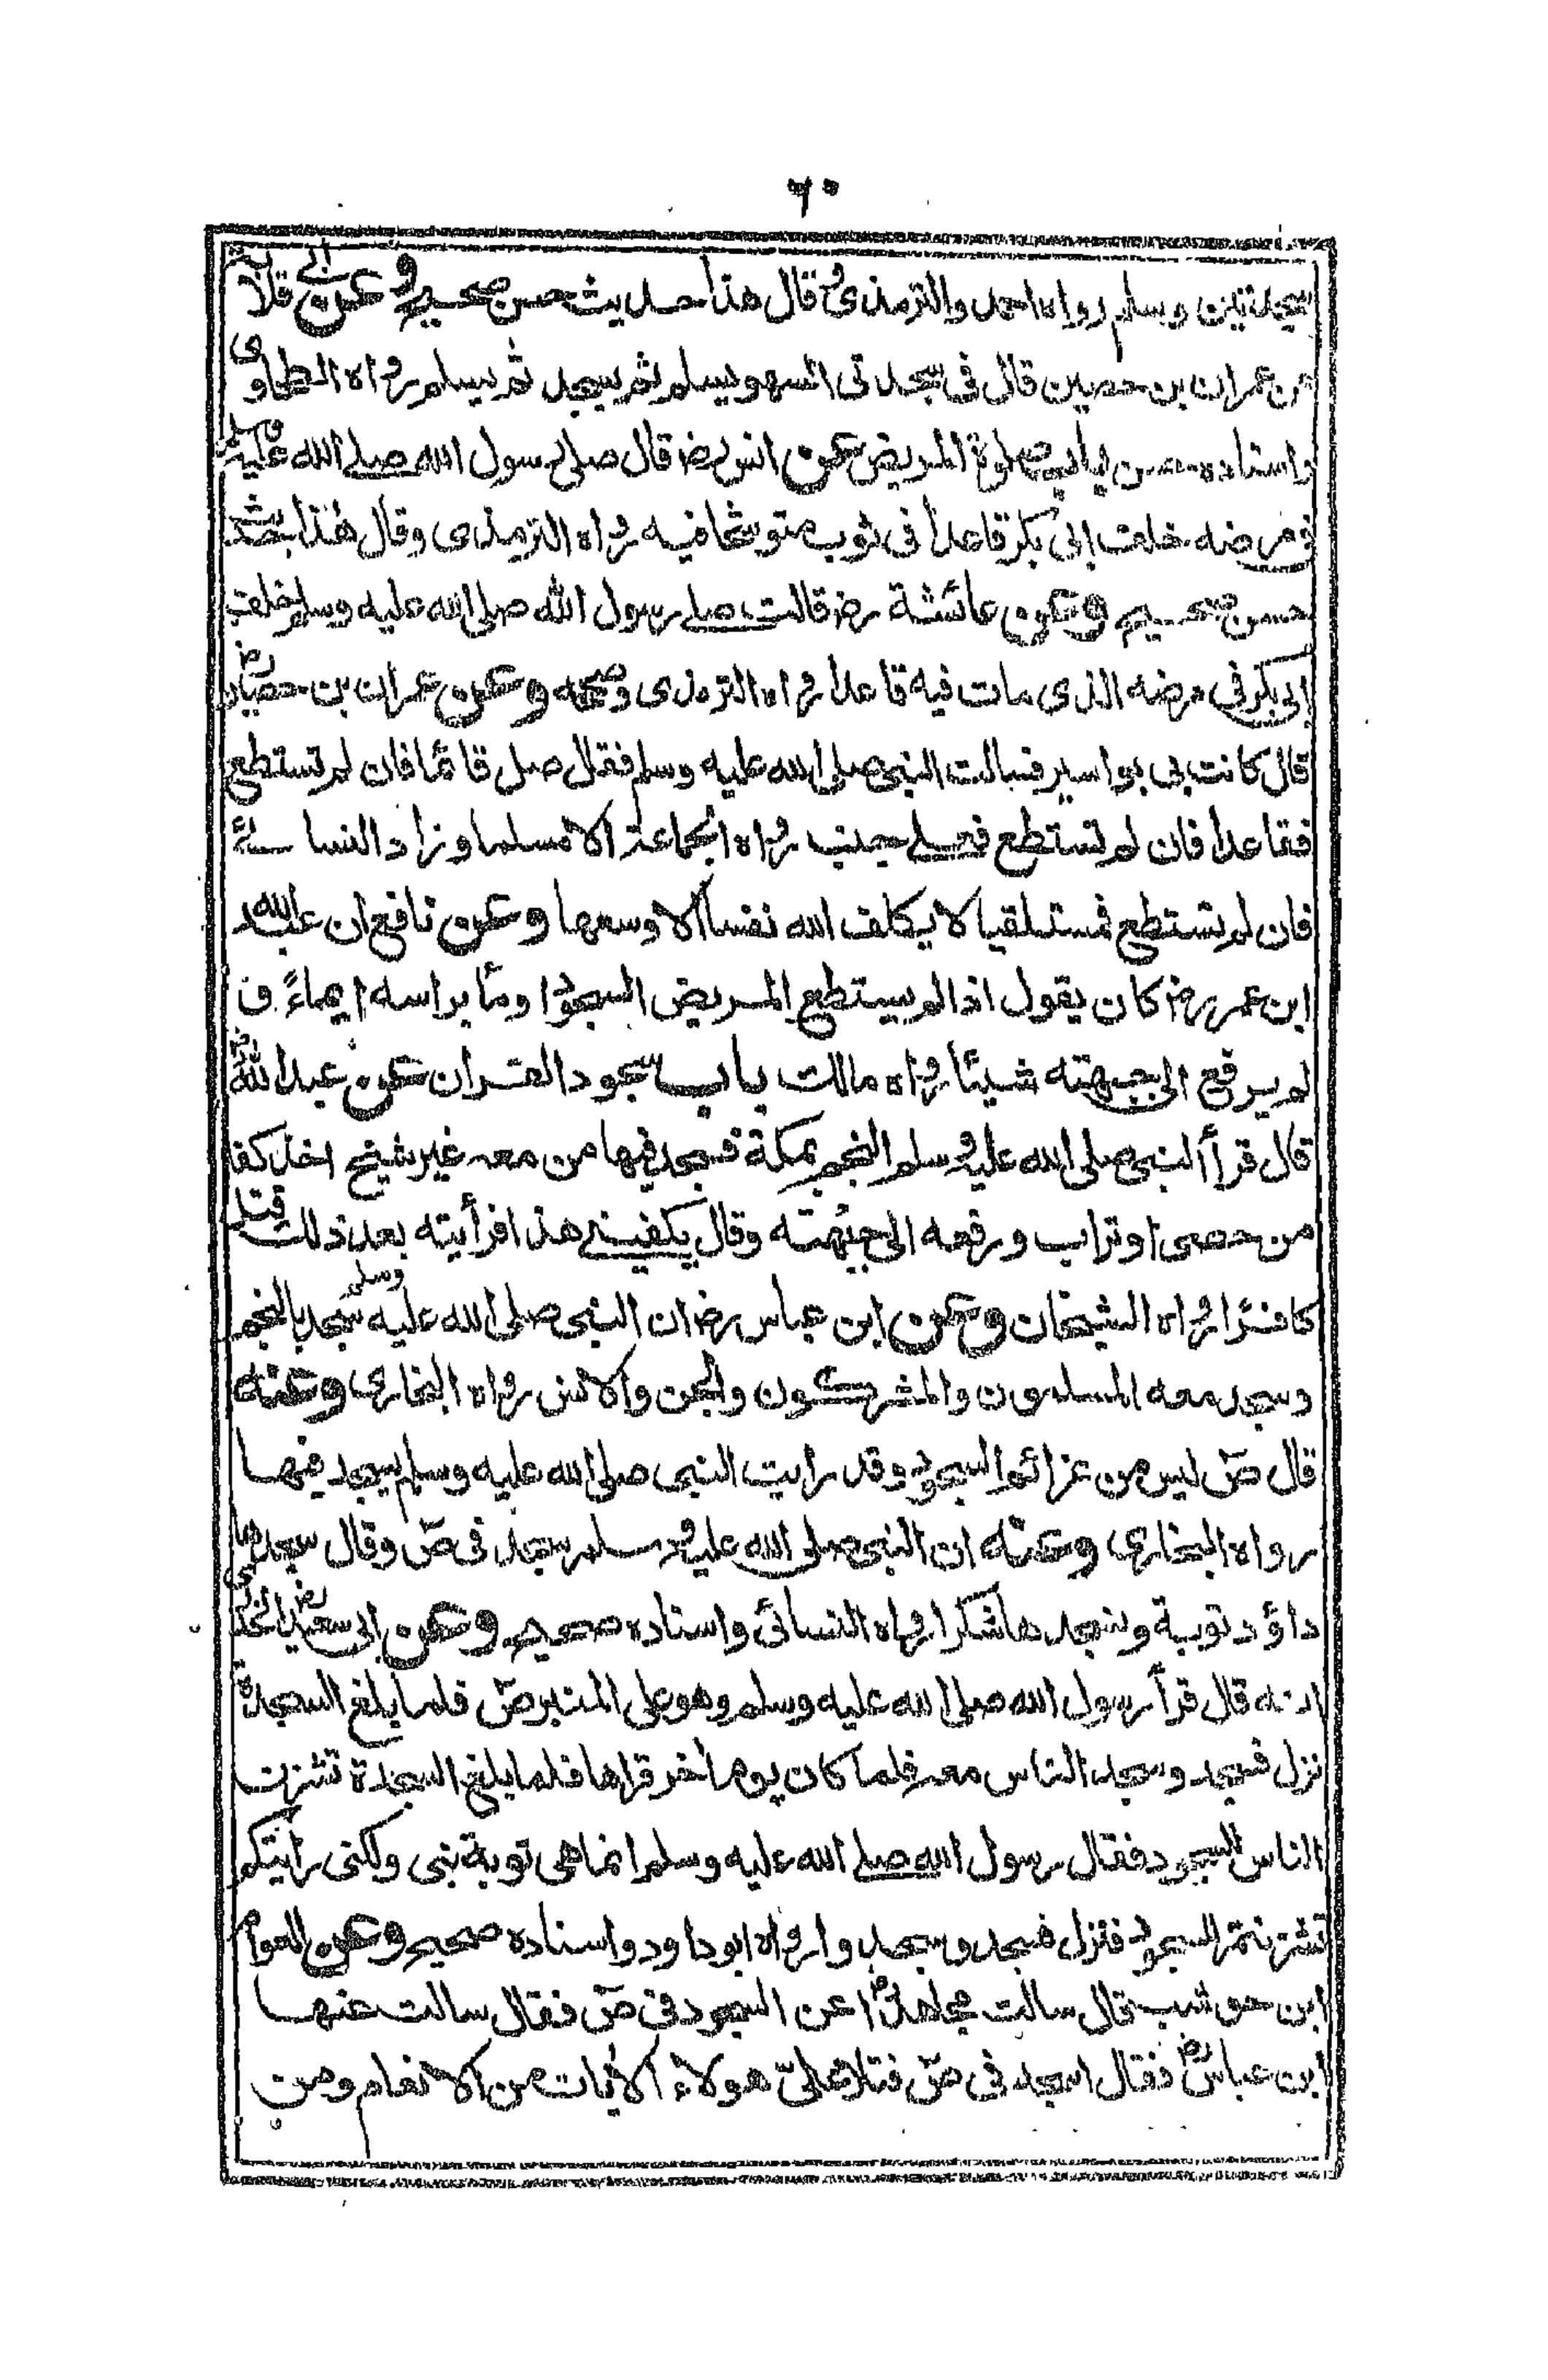 ٦٠
سجدتين وسلم رواه احمد والترمذي وقال هذا حديث حسن صحيح وعن ابي قلابة
عن عمران بن حصين قال في سجدتي السهو يسلم ثم يسجد ثم يسلم رواه الطحاوى
واسناده حسن باب صلوة المريض عن انس رضـ قال صلى رسول الله صلى الله عليه وسلم
في مرضه خلف ابي بكر قاعدا في ثوب متوشحا فيه رواه الترمذى وقال هذا حديث
حسن صحيح وعن عائشة رضـ قالت صلى رسول الله صلى الله عليه وسلم خلف
ابي بكر في مرضه الذى مات فيه قاعدا رواه الترمذى وصححه وعن عمران بن حصين رضـ
قال كانت بي بواسير فسالت النبي صلى الله عليه وسلم فقال صل قائما فان لم تستطع
فقاعدا فان لم تستطع فعلى جنب رواه الجماعة الا مسلما وزاد النسائي
فان لم تستطع فمستلقيا لا يكلف الله نفسا الا وسعها وعن نافع ان عبد الله
ابن عمر رضـ كان يقول اذا لم يستطع المريض السجود اومأ براسه ايماءً و
لم يرفع الى جبهته شيئا رواه مالك باب سجود القران عن عبد الله رضـ
قال قرأ النبي صلى الله عليه وسلم النجم بمكة فسجد فيها من معه غير شيخ اخذ كفا
من حصى او تراب ورفعه الى جبهته وقال يكفيني هذا فرأيته بعد ذلك قتل
كافرا رواه الشيخان وعن ابن عباس رضـ ان النبي صلى الله عليه وسلم سجد بالنجم
وسجد معه المسلمون والمشركون والجن والانس رواه البخاري وعنه
قال صٓ ليس من عزائم السجود وقد رايت النبي صلى الله عليه وسلم يسجد فيها
رواه البخاري وعنه ان النبي صلى الله عليه وسلم سجد في صٓ وقال سجدها
داؤد توبة ونسجدها شكرا رواه النسائي واسناده صحيح وعن ابي سعيد الخدري رضـ
انه قال قرأ رسول الله صلى الله عليه وسلم وهو على المنبر صٓ فلما بلغ السجدة
نزل فسجد وسجد الناس معه فلما كان يوما اخر قراها فلما بلغ السجدة تشزن
الناس للسجود فقال رسول الله صلى الله عليه وسلم انما هى توبة نبي ولكنى رايتكم
تشزنتم للسجود فنزل فسجد وسجدوا رواه ابو داود واسناده صحيح وعن العوام
ابن حوشب قال سالت مجاهدا عن السجود في صٓ فقال سالت عنها
ابن عباس رضـ فقال اسجد في صٓ فتلا علىّ هولاء الايات من الانعام ومن